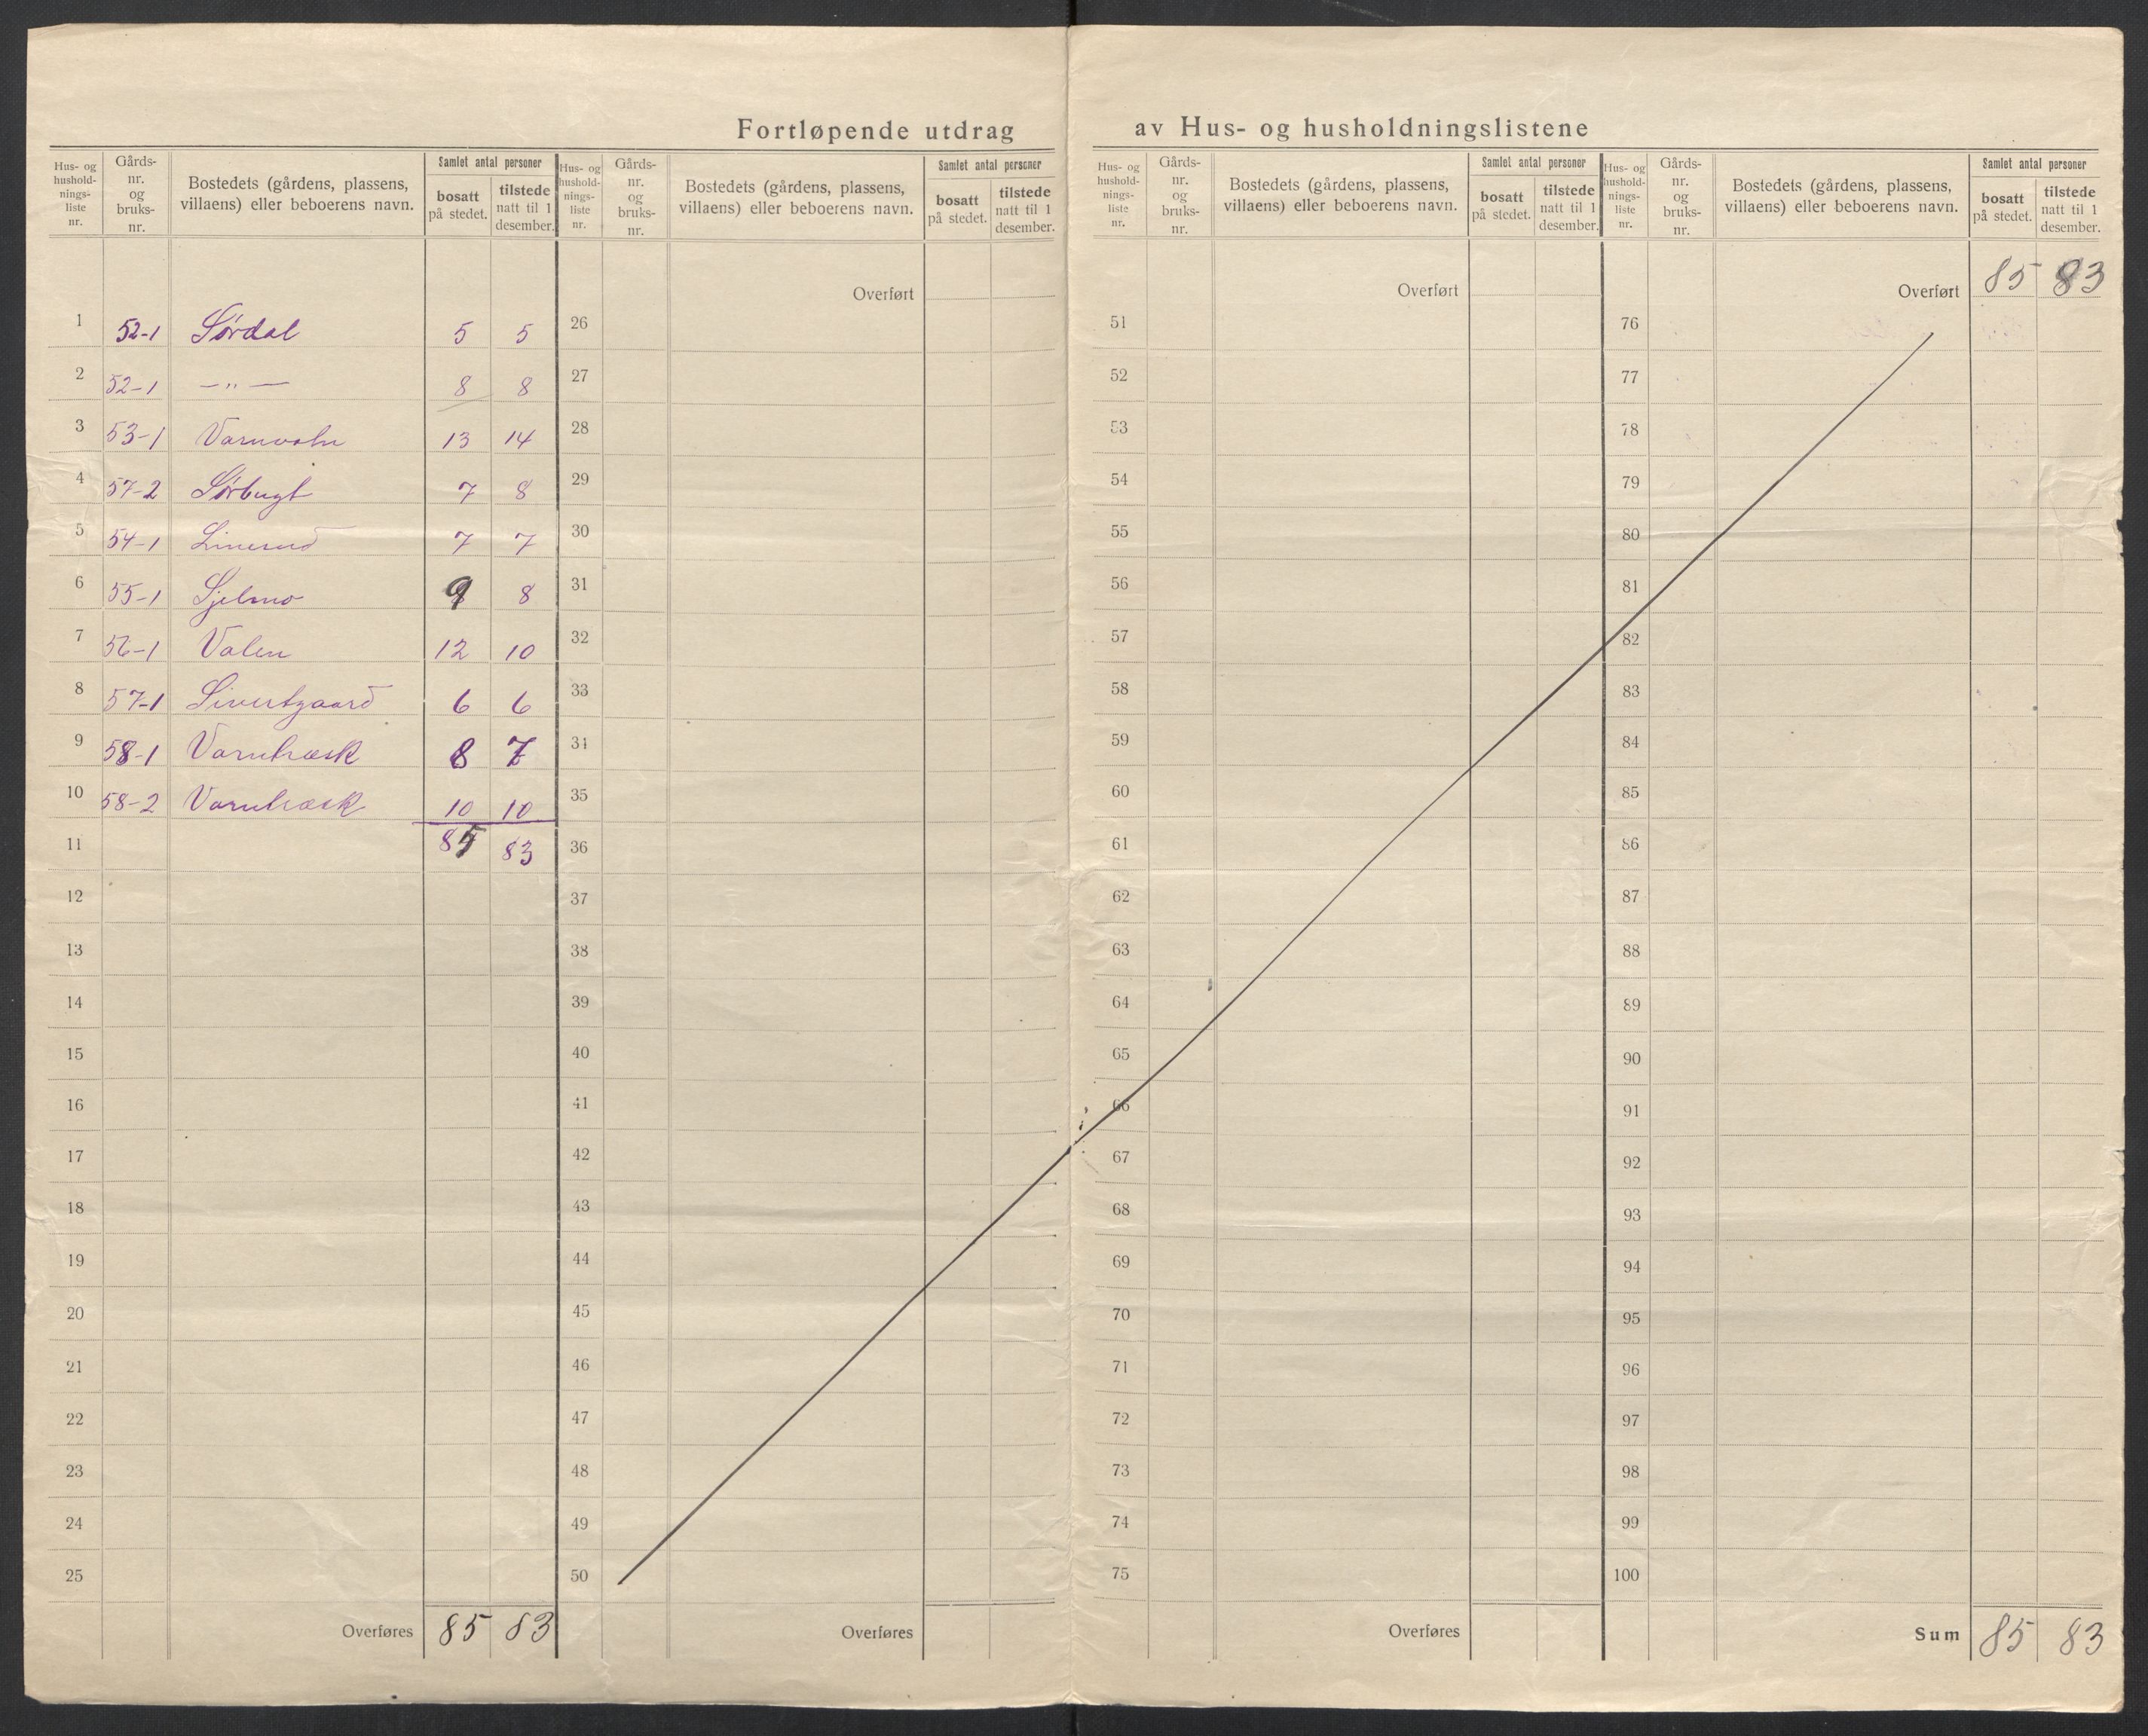 Fortløpende utdrag av Hus- og husholdningslistene
Hus- og husholdningsliste nr. | Gårds-nr. og bruks-nr. | Bostedets (gårdens, plassens, villaens) eller beboerens navn. | Samlet antal personer | bosatt på stedet. | tilstede natt til 1 desember.
1 52-1 Sørdal 5 5
2 52-1 —„— 8 8
3 53-1 13 14
4 57-2 Sørbugt 7 8
5 54-1 7 7
6 55-1 Sjelmo 9 8
7 56-1 Valen 12 10
8 57-1 Sivertgaard 6 6
9 58-1 Varntræsk 8 7
10 58-2 Varntræsk 10 10
11 85 83
12
13
14
15
16
17
18
19
20
21
22
23
24
25
Overføres 85 83
Hus- og husholdningsliste nr. | Gårds-nr. og bruks-nr. | Bostedets (gårdens, plassens, villaens) eller beboerens navn. | Samlet antal personer | bosatt på stedet. | tilstede natt til 1 desember.
Overført
26
27
28
29
30
31
32
33
34
35
36
37
38
39
40
41
42
43
44
45
46
47
48
49
50
Overføres
Hus- og husholdningsliste nr. | Gårds-nr. og bruks-nr. | Bostedets (gårdens, plassens, villaens) eller beboerens navn. | Samlet antal personer | bosatt på stedet. | tilstede natt til 1 desember.
Overført
51
52
53
54
55
56
57
58
59
60
61
62
63
64
65
66
67
68
69
70
71
72
73
74
75
Overføres
Hus- og husholdningsliste nr. | Gårds-nr. og bruks-nr. | Bostedets (gårdens, plassens, villaens) eller beboerens navn. | Samlet antal personer | bosatt på stedet. | tilstede natt til 1 desember.
Overført 85 83
76
77
78
79
80
81
82
83
84
85
86
87
88
89
90
91
92
93
94
95
96
97
98
99
100
Sum 85 83